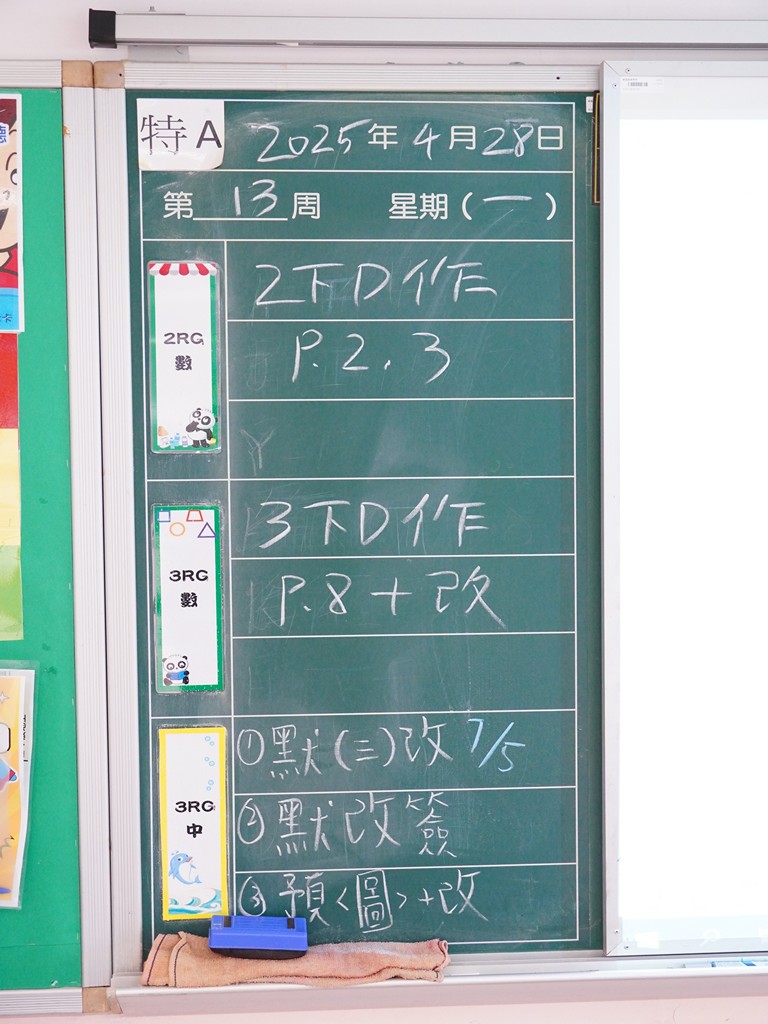 特A 2025年4月28日
第13周 星期(一)
2RG
數
2下D作
P.2.3
3RG
數
3下D作
P.8+改
3RG
中
①默(三)改 7/5
②默改簽
③預<圖>+改